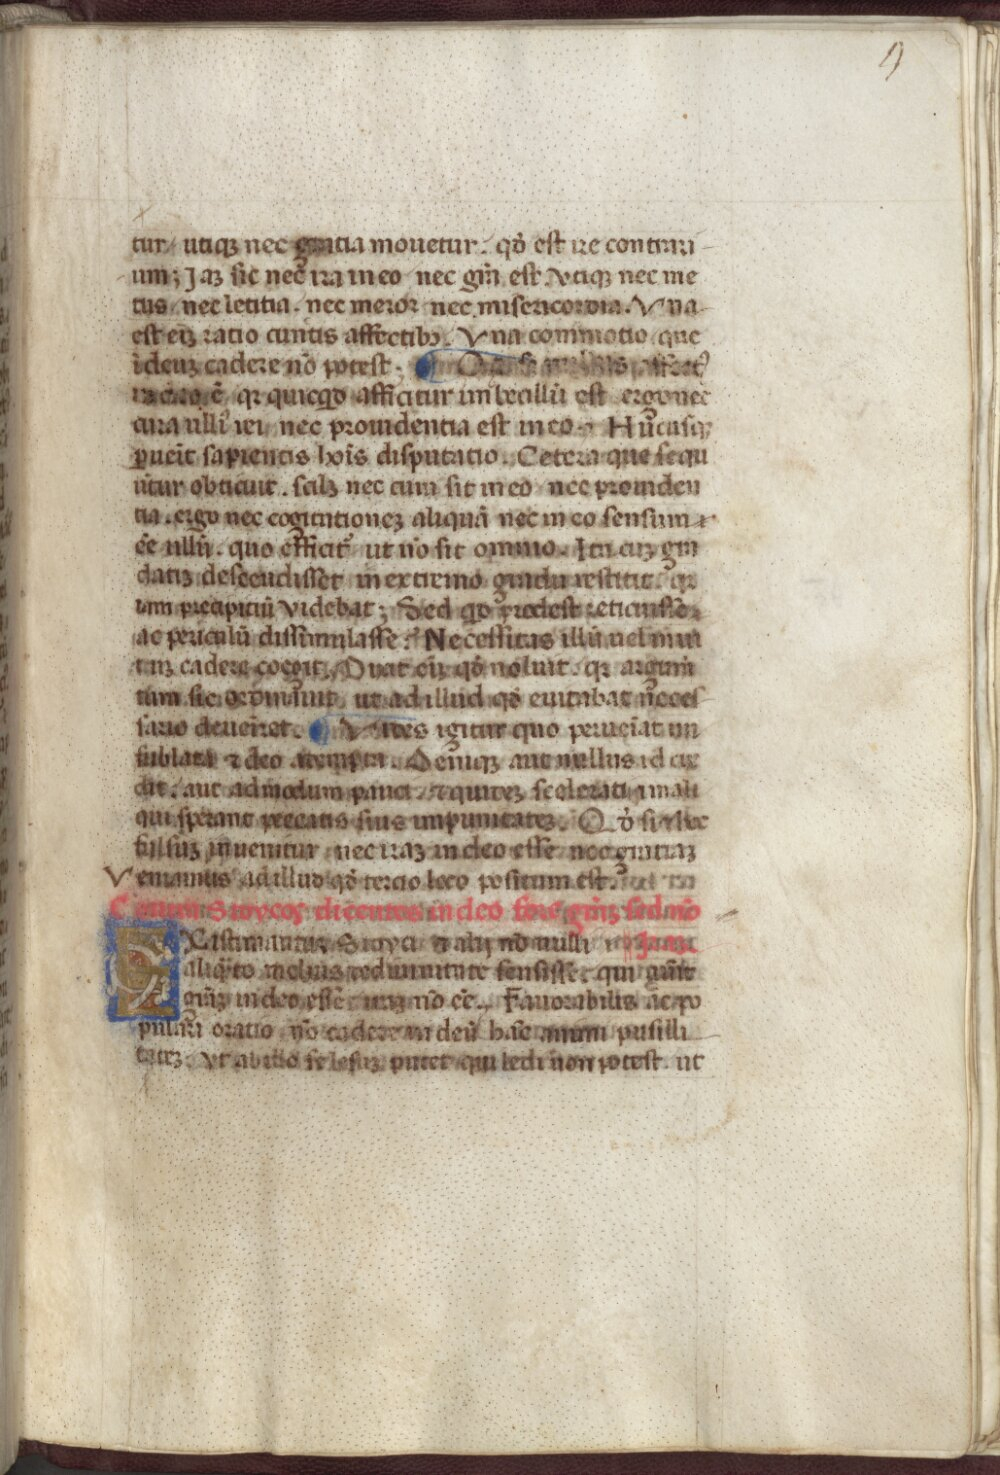 9
tur / utiqꝫ nec gratia mouetur . qđ est ire contrari-
um ; Jaꝫ sic nec ira in eo nec grã est . Vtiqꝫ nec me
tus nec letitia . nec meror nec misericordia . Vna-
est eiꝫ ratio cuntis affectibꝫ . Vna commotio que
ĩ deuꝫ cadere nõ potest ;
ẽ qꝛ quicqđ afficitur imbecillũ est ergo nec
cura ulli rei nec prouidentia est in eo . Hucusqꝫ
ꝑueĩt sapientis hoĩs disputatio . Cetera que sequ
ũtur obticuit . scilꝫ nec cura sit in eo nec prouiden
tia . ergo nec cogitationeꝫ aliquã nec in eo sensum
ẽe ullũ . quo efficitᷣ ut nõ sit omnino . Ita cuꝫ gra
datiꝫ descendisset in extremo gradu restitit . qꝛ
iam precipitiũ videbat ; Sed qđ prodest reticuisse
ac periculũ dissimulasse . Necessitas illũ uel inui
tuꝫ cadere coegit . Dixit eiꝫ qđ noluit . qꝛ argum̃
tum sic ordinauit ut ad illud qđ euitabat neces-
sario deueĩret . Vides igitur quo perueĩat ira
sublata deo adempta . Deniqꝫ aut nullus id cre
dit . aut admodum pauci quideꝫ scelerati mali
qui sperant peccatis suis impunitateꝫ . Qđ si hec
falsuꝫ inuenitur nec iraꝫ in deo esse nec gratiaꝫ
Veniamus ad illud qđ tercio loco positum est .
Stoycos dicentes in deo fore grãꝫ sed nõ
iraꝫ
Existimantur Stoyci alij nõ nulli
aliqñto melius de diuinitate sensisse qui aiũt
grãꝫ in deo esse iraꝫ nõ ẽe . Fauorabilis ac po
pulari oratio nõ cadere in deũ hãc animi pusilli-
tateꝫ . Vt ab illo se lesuꝫ putet qui ledi non potest . ut